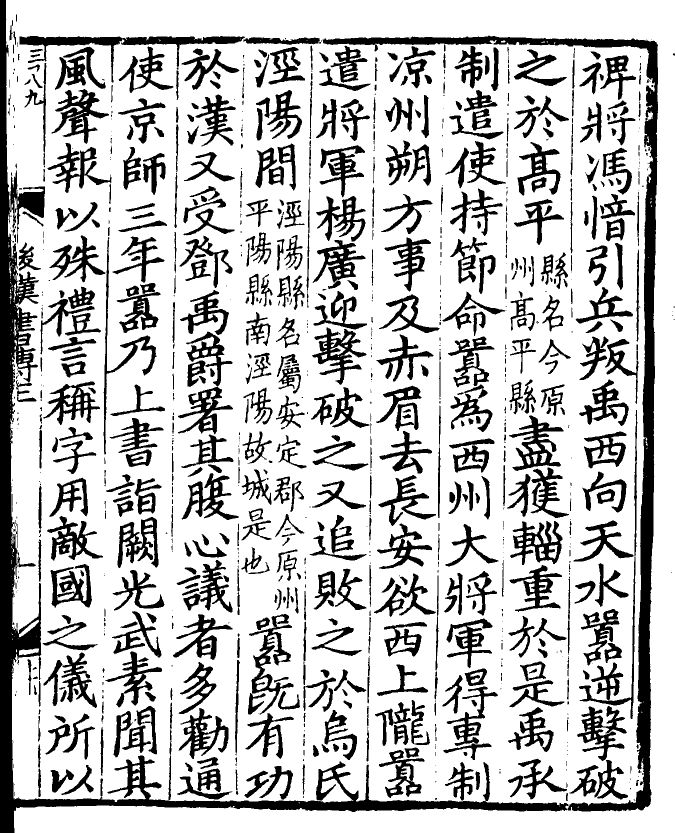 裨將馮愔引兵叛禹西向天水囂逆擊破
之於高平縣名今原州高平縣盡獲輜重於是禹承
制遣使持節命囂為西州大將軍得專制
涼州朔方事及赤眉去長安欲西上隴囂
遣將軍楊廣迎擊破之又追敗之於烏氏
涇陽間涇陽縣名屬安定郡今原州平陽縣南涇陽故城是也囂既有功
於漢又受鄧禹爵署其腹心議者多勸通
使京師三年囂乃上書詣闕光武素聞其
風聲報以殊禮言稱字用敵國之儀所以
三八九
後漢書傳三